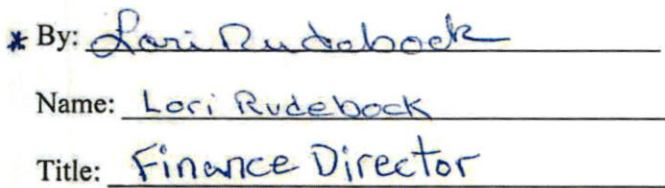 * By: Lori Rudebock
Name: Lori Rudebock
Title: Finance Director